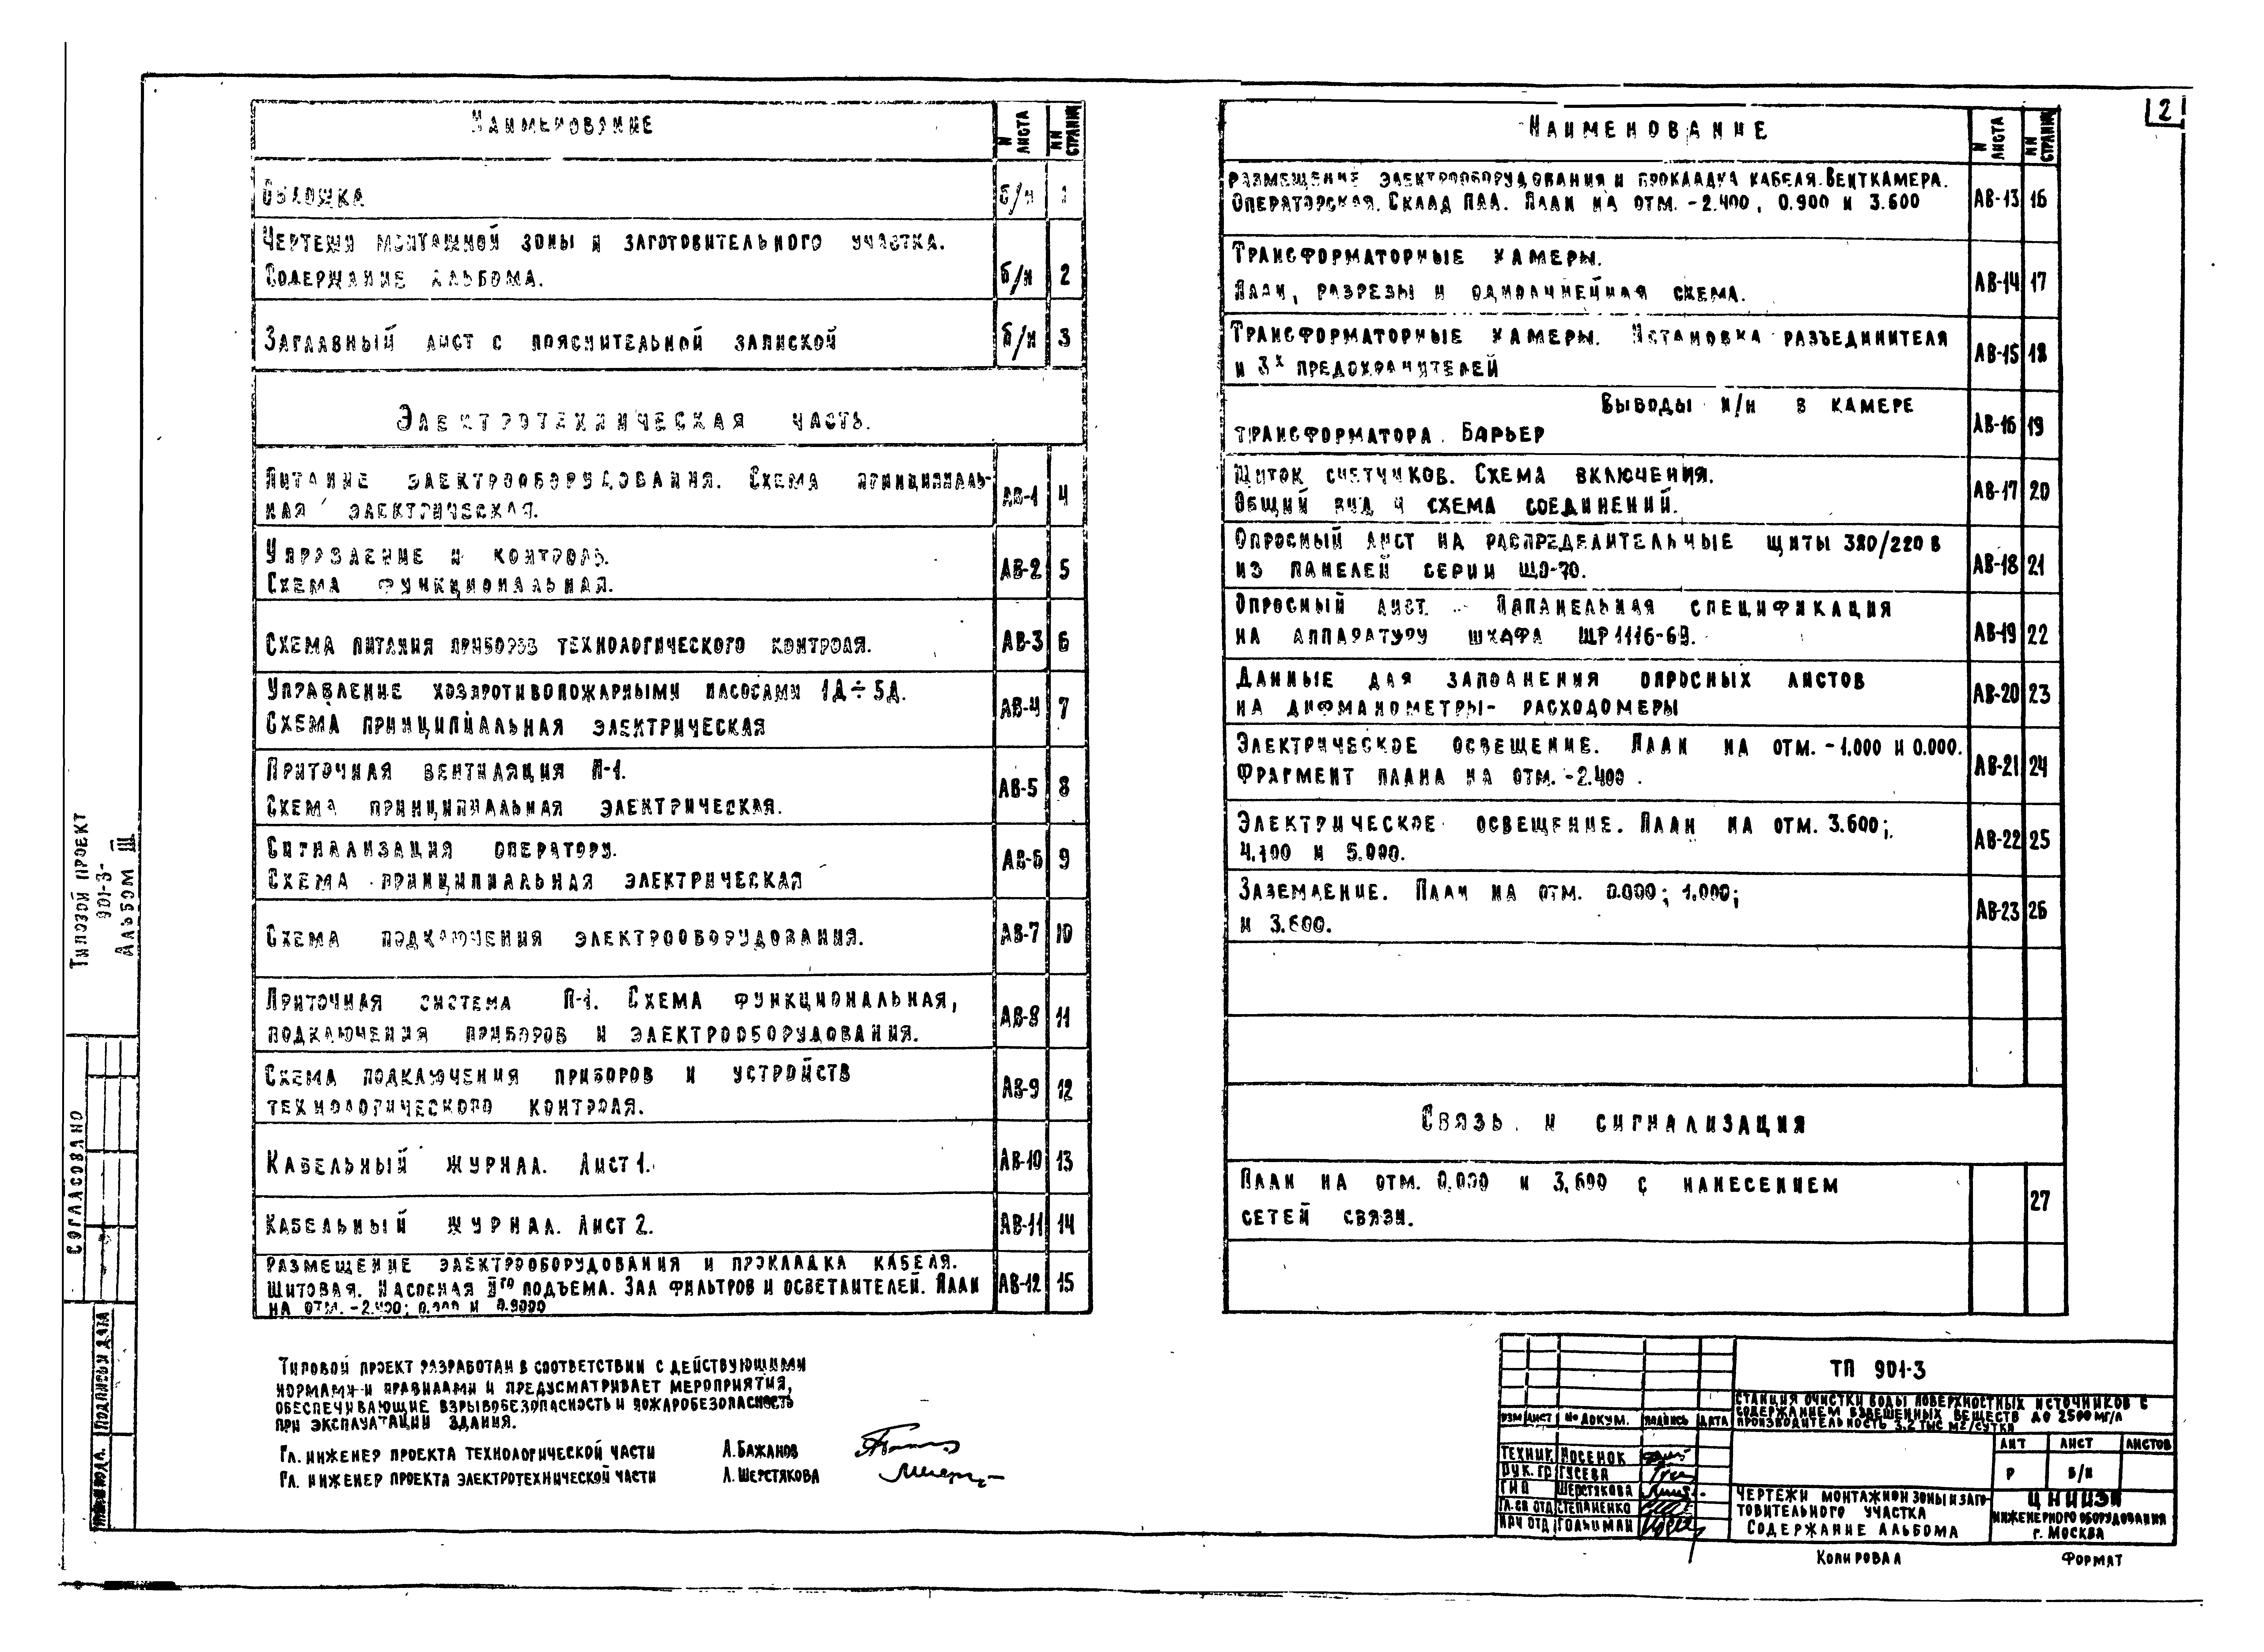 2
Наименование
N листа
NN страниц
Обложка
б/н
1
Чертежи монтажной зоны и заготовительного участка.
Содержание альбома.
б/н
2
Заглавный лист с пояснительной запиской
б/н
3
Электротехническая часть.
Питание электрооборудования. Схема принципиаль-
ная электрическая.
АВ-1
4
Управление и контроль.
Схема функциональная.
АВ-2
5
Схема питания приборов технологического контроля.
АВ-3
6
Управление хозпротивопожарными насосами 1Д÷5Д.
Схема принципиальная электрическая
АВ-4
7
Приточная вентиляция П-1.
Схема принципиальная электрическая.
АВ-5
8
Сигнализация оператору.
Схема принципиальная электрическая
АВ-6
9
Схема подключения электрооборудования.
АВ-7
10
Приточная система П-1. Схема функциональная,
подключения приборов и электрооборудования.
АВ-8
11
Схема подключения приборов и устройств
технологического контроля.
АВ-9
12
Кабельный журнал. Лист 1.
АВ-10
13
Кабельный журнал. Лист 2.
АВ-11
14
Размещение электрооборудования и прокладка кабеля.
Щитовая. Насосная IIго подъема. Зал фильтров и осветлителей. План
на отм. -2.400; 0.000 и 0.9000
АВ-12
15
Наименование
N листа
NN страниц
Размещение электрооборудования и прокладка кабеля. Венткамера.
Операторская. Склад ПАА. План на отм. -2.400, 0.900 и 3.600
АВ-13
16
Трансформаторные камеры.
План, разрезы и однолинейная схема.
АВ-14
17
Трансформаторные камеры. Установка разъединителя
и 3х предохранителей
АВ-15
18
Выводы н/н в камере
трансформатора. Барьер
АВ-16
19
Щиток счетчиков. Схема включения.
Общий вид и схема соединений.
АВ-17
20
Опросный лист на распределительные щиты 380/220 в
из панелей серии ЩО-70.
АВ-18
21
Опросный лист. Папанельная спецификация
на аппаратуру шкафа ШР 1116-69.
АВ-19
22
Данные для заполнения опросных листов
на дифманометры- расходомеры
АВ-20
23
Электрическое освещение. План на отм. -1.000 и 0.000.
Фрагмент плана на отм. -2.400.
АВ-21
24
Электрическое освещение. План на отм. 3.600;
4.100 и 5.000.
АВ-22
25
Заземление. План на отм. 0.000; 1.000;
и 3.600.
АВ-23
26
Связь и сигнализация
План на отм. 0.000 и 3.600 с нанесением
сетей связи.
27
Типовой проект
901-3-
Альбом III
Согласовано
Подпись и дата
Типовой проект разработан в соответствии с действующими
нормами и правилами и предусматривает мероприятия,
обеспечивающие взрывобезопасность и пожаробезопасность
при эксплуатации здания.
Гл. инженер проекта технологической части Л. Бажанов
Гл. инженер проекта электротехнической части Л. Шерстякова
ТП 901-3
Станция очистки воды поверхностных источников с
содержанием взвешенных веществ до 2500 мг/л
производительность 3.2 тыс м2/сутки
Изм Лист № докум. Подпись Дата
Техник Носенок
Рук. гр Гусева
ГИП Шерстякова
Гл. сп отд Степаненко
Нач отд Гольцман
Лит Лист Листов
Р б/н
Чертежи монтажной зоны и заго-
товительного участка
Содержание альбома
ЦНИИЭП
инженерного оборудования
г. Москва
Копировал
Формат